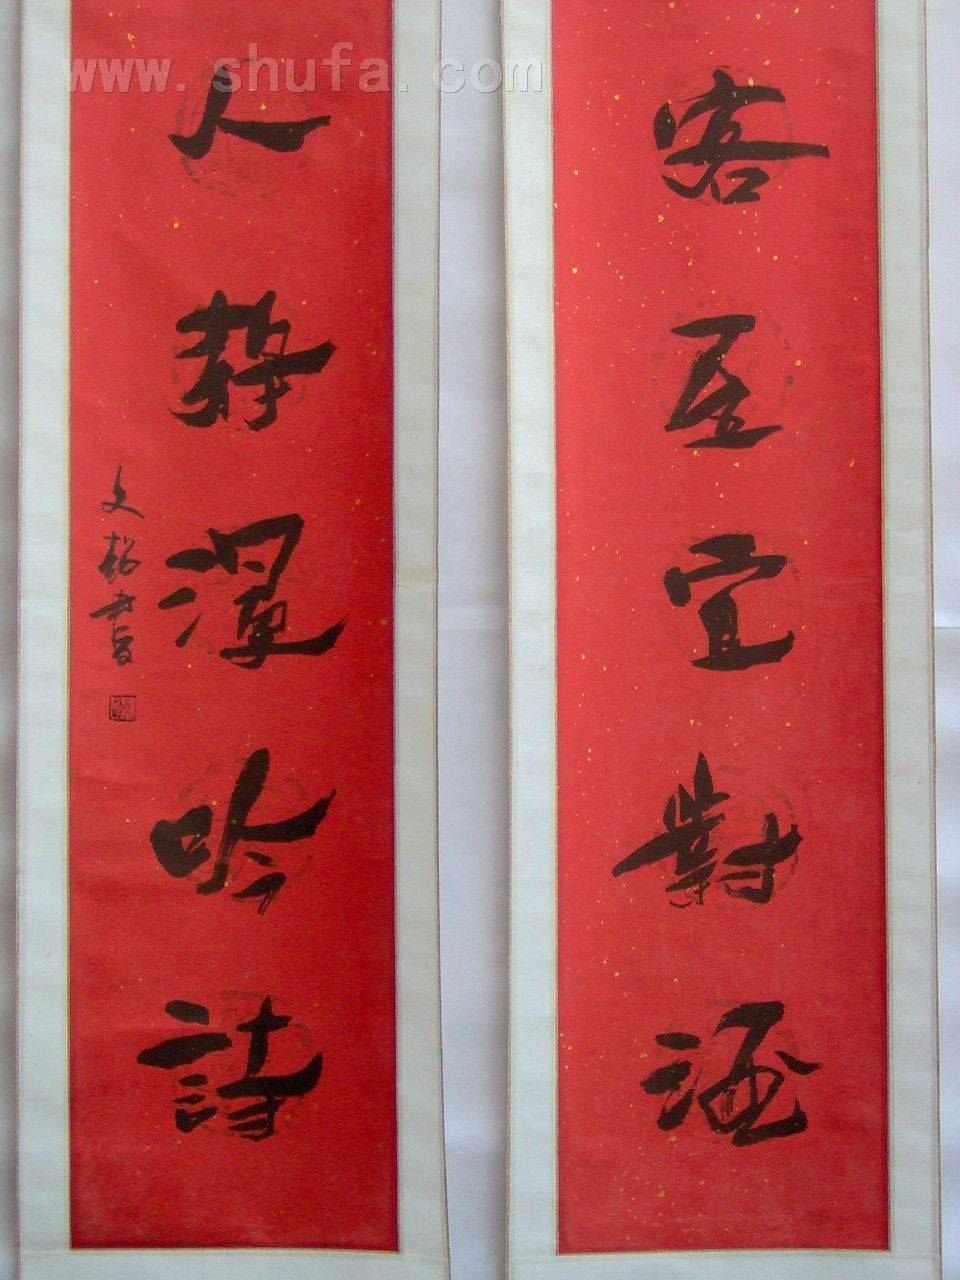 www.shufa.com
客至宜對酒
人靜吟詩
文書